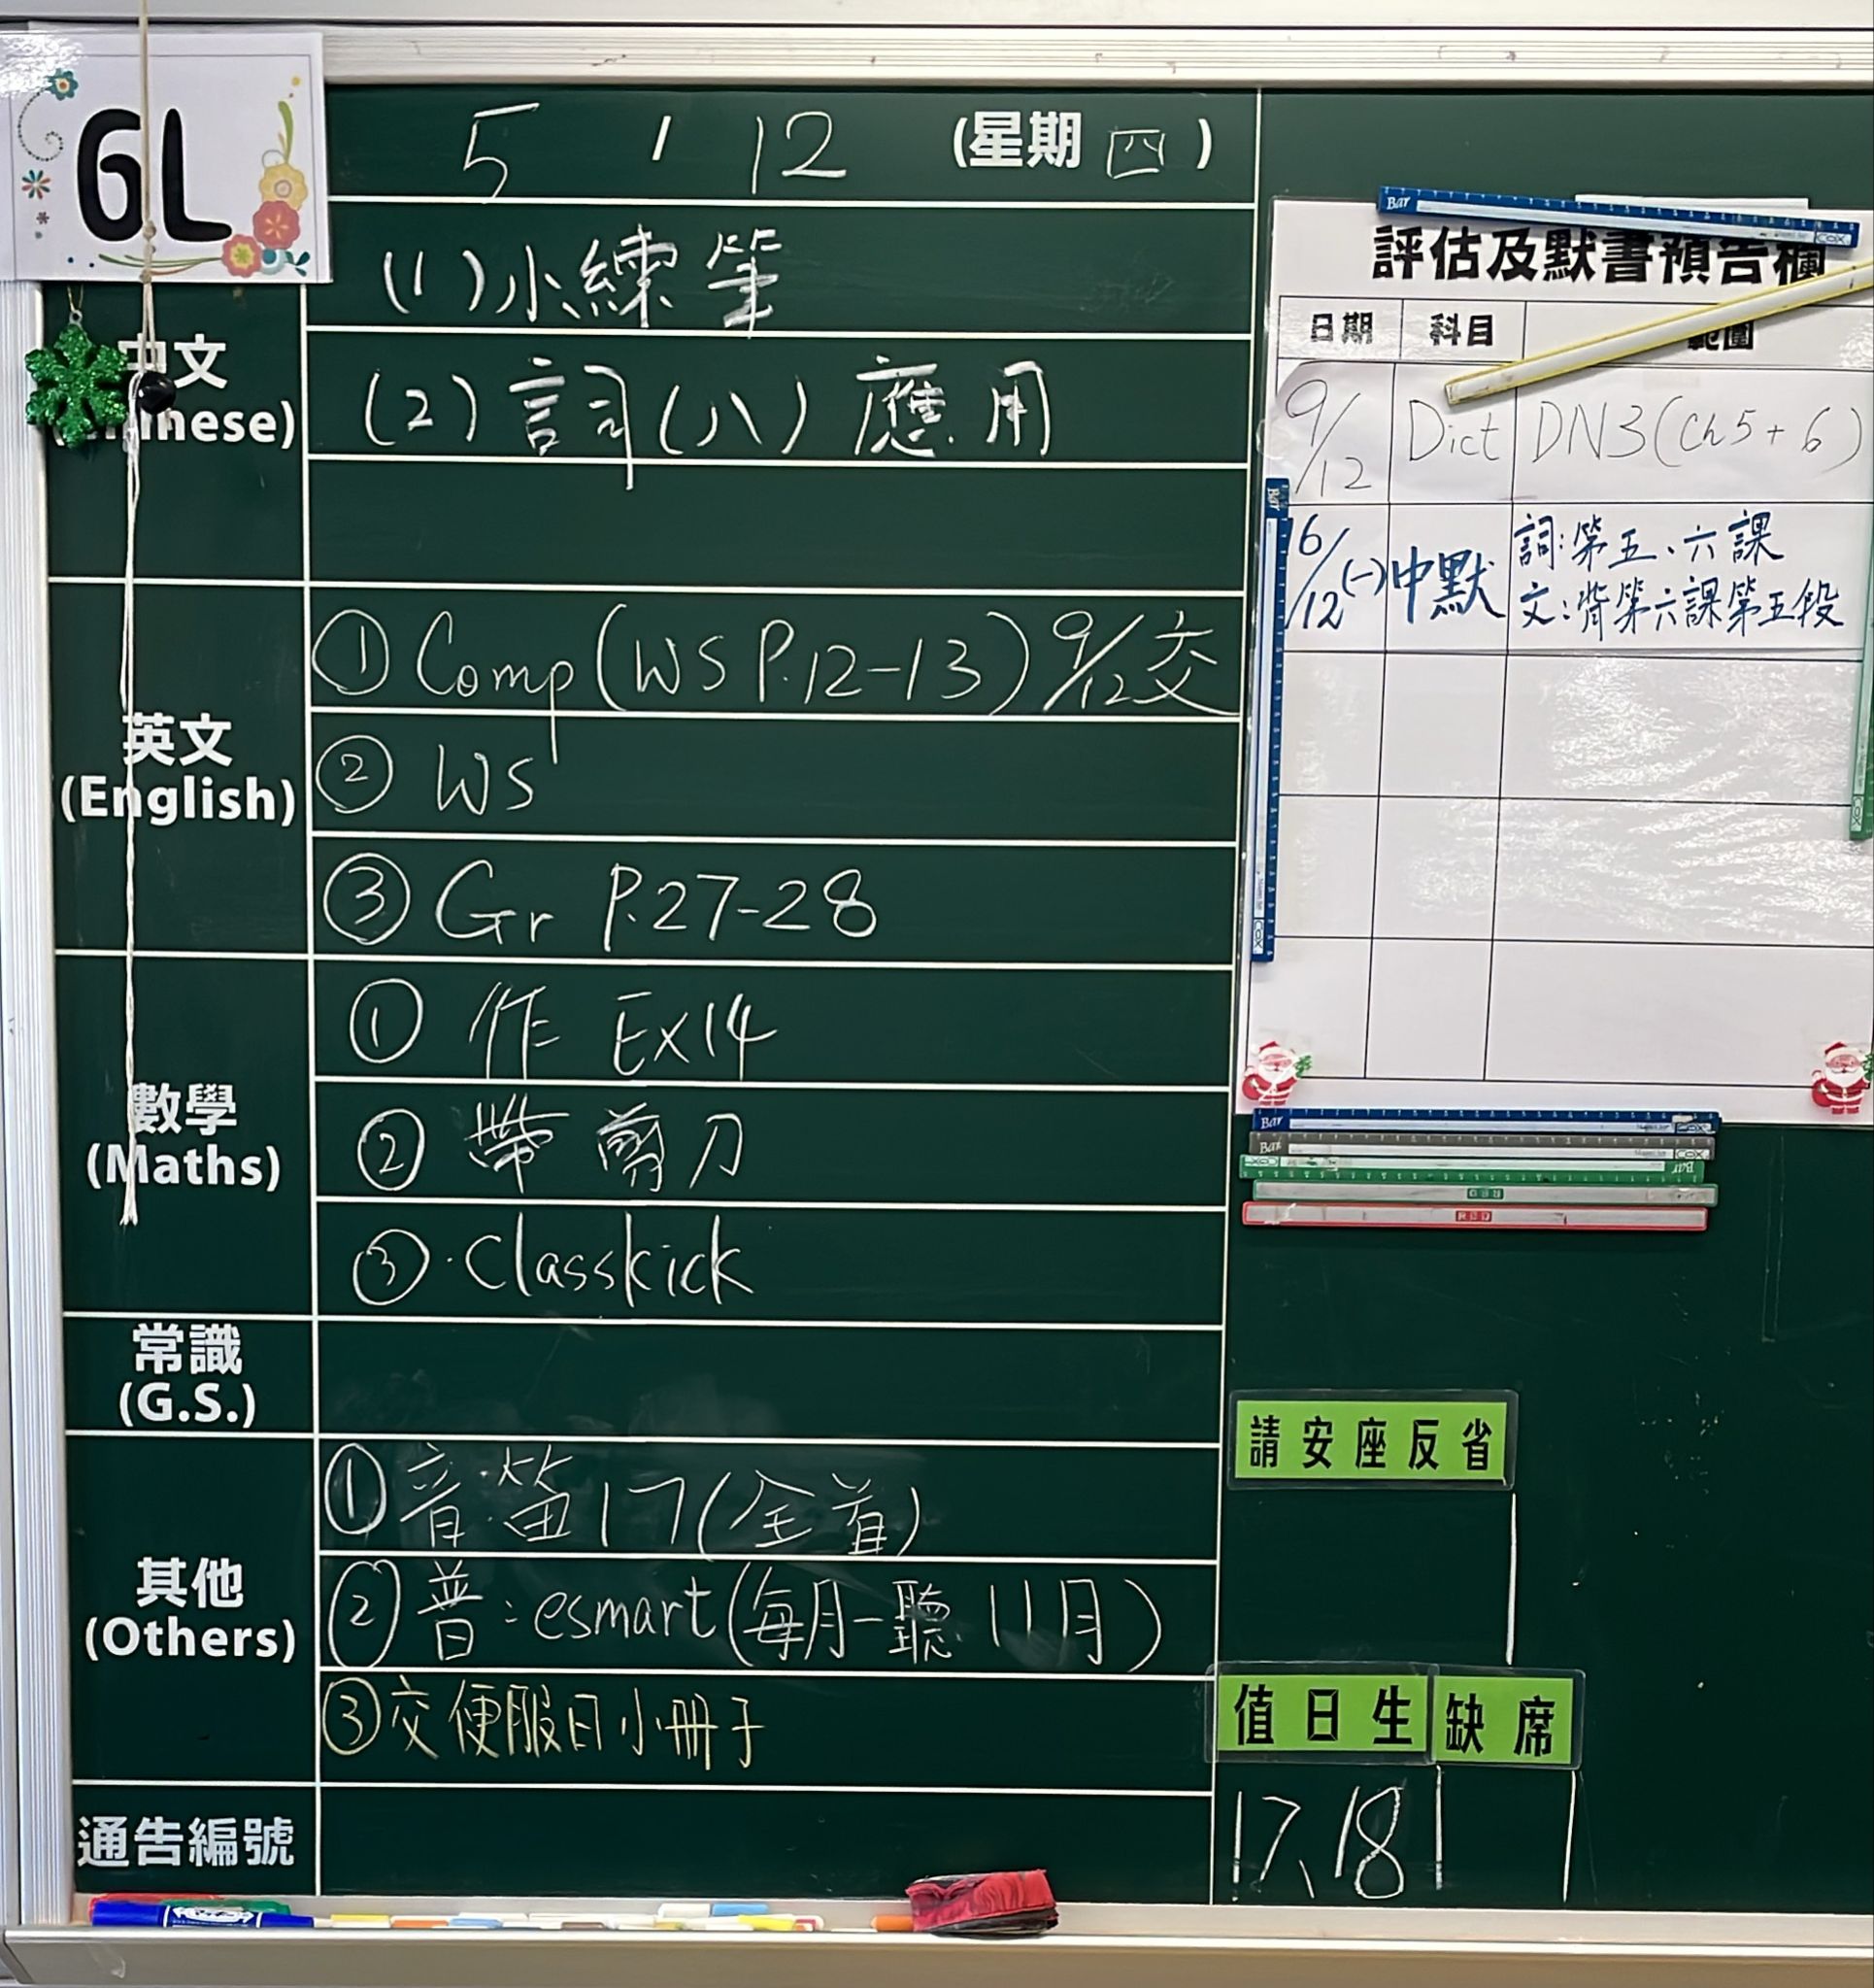 6L
5 / 12 (星期 四 )
中文
(Chinese)
(1)小練筆
(2)詞(八)應用
英文
(English)
① Comp (WS P.12-13) 9/12交
② WS
③ Gr P.27-28
數學
(Maths)
① 作 Ex14
② 帶 剪刀
③ Classkick
常識
(G.S.)
其他
(Others)
① 音:笛17(全首)
② 普:esmart(每月一聽 11月)
③交便服日小冊子
通告編號
評估及默書預告欄
日期 科目 範圍
9/12 Dict DN3(Ch5+6)
16/12(一) 中默 詞:第五、六課
文:背第六課第五段
請安座反省
值日生 缺席
17、18